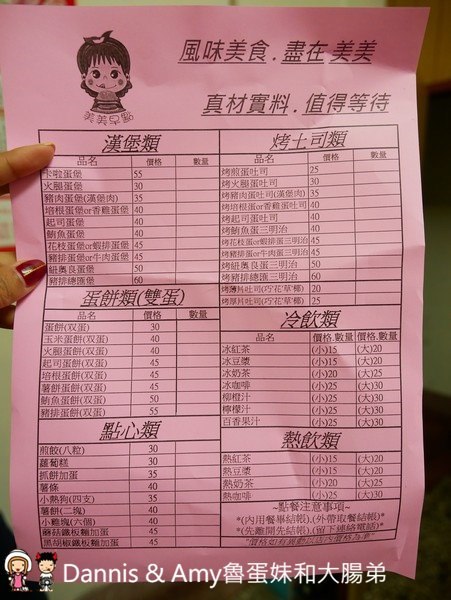 風味美食.盡在 美美
真材實料.值得等待
美美早點
漢堡類
品名 價格 數量
卡啦蛋堡 55
火腿蛋堡 30
豬肉蛋堡(漢堡肉) 35
培根蛋堡or香雞蛋堡 40
起司蛋堡 40
鮪魚蛋堡 40
花枝蛋堡or蝦排蛋堡 45
豬排蛋堡or牛肉蛋堡 45
紐奧良蛋堡 50
豬排總匯堡 60
蛋餅類(雙蛋)
蛋餅(双蛋) 30
玉米蛋餅(双蛋) 40
火腿蛋餅(双蛋) 40
起司蛋餅(双蛋) 45
培根蛋餅(双蛋) 45
薯餅蛋餅(双蛋) 45
鮪魚蛋餅(双蛋) 50
豬排蛋餅(双蛋) 55
點心類
煎餃(八粒) 30
蘿蔔糕 30
抓餅加蛋 35
薯條 30
小熱狗(四支) 35
薯餅(二塊) 40
小雞塊(六個) 40
蘑菇鐵板麵加蛋 45
黑胡椒鐵板麵加蛋 45
烤土司類
品名 價格 數量
烤煎蛋吐司 25
烤火腿蛋吐司 30
烤豬肉蛋吐司(漢堡肉) 35
烤培根蛋or香雞蛋吐司 40
烤起司蛋吐司 40
烤鮪魚蛋三明治 40
烤花枝蛋or蝦排蛋三明治 45
烤豬排蛋or牛肉蛋三明治 45
烤紐奧良蛋三明治 50
烤豬排總匯三明治 60
烤薄片吐司(巧‧花‧草‧椰) 20
烤厚片吐司(巧‧花‧草‧椰) 25
冷飲類
品名 價格.數量 價格.數量
冰紅茶 (小)15 (大)20
冰豆漿 (小)15 (大)20
冰奶茶 (小)20 (大)25
冰咖啡 (小)25 (大)30
柳橙汁 (小)25 (大)30
檸檬汁 (小)25 (大)30
百香果汁 (小)25 (大)30
熱飲類
熱紅茶 (小)15 (大)20
熱豆漿 (小)15 (大)20
熱奶茶 (小)20 (大)25
熱咖啡 (小)25 (大)30
~點餐注意事項~
*(內用餐畢結帳),(外帶取餐結帳)
*(先離開先結帳),(留下連絡電話)
Dannis & Amy魯蛋妹和大腸弟